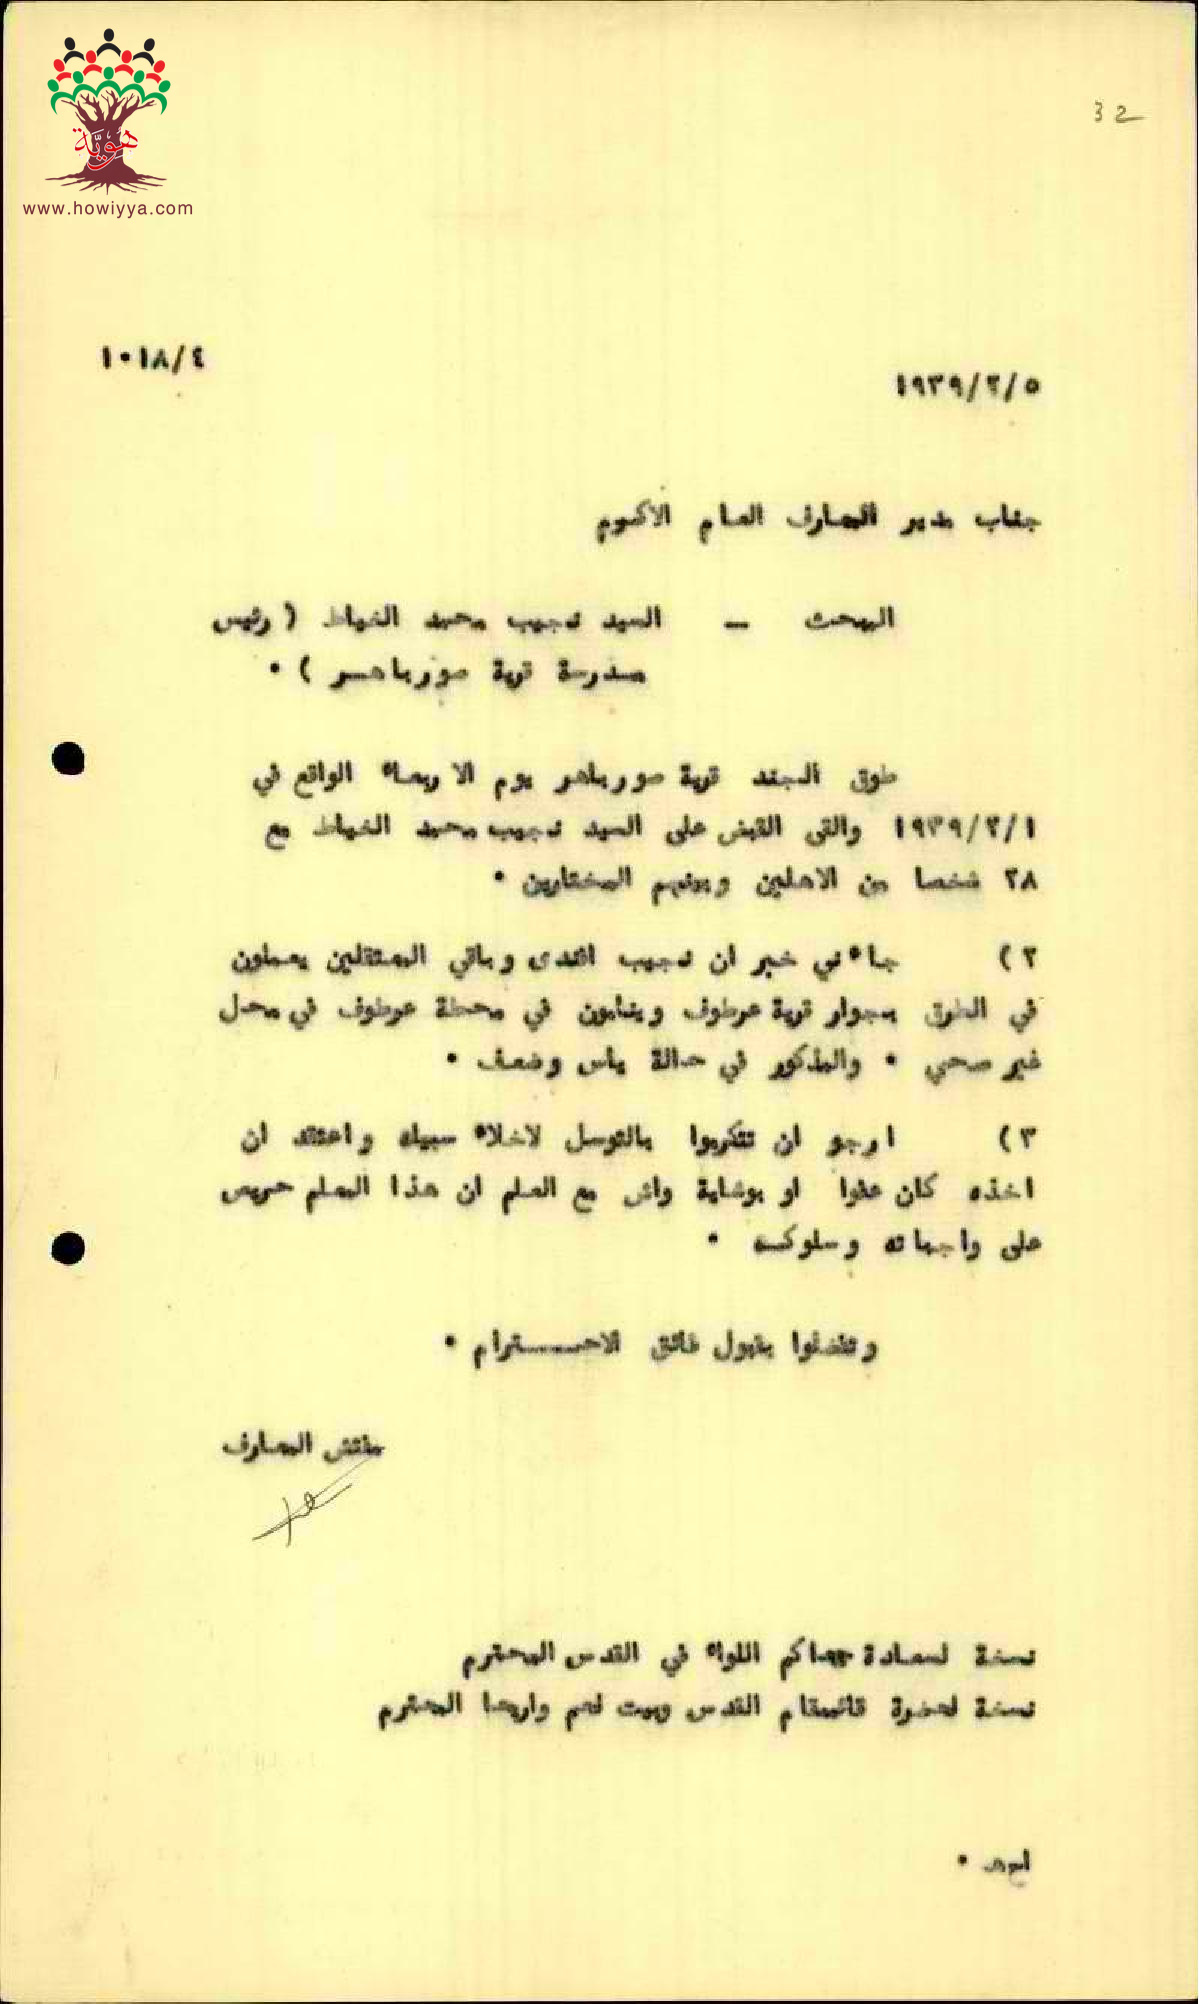 هوية
www.howiyya.com
32
١٠١٨/٤
١٩٣٩/٢/٥
جناب مدير المعارف العام الاكرم
المبحث - السيد نجيب محمد الخياط ( رئيس
مدرسة قرية صورباهر ) .
طوق الجند قرية صورباهر يوم الاربعاء الواقع في
١٩٣٩/٢/١ والقى القبض على السيد نجيب محمد الخياط مع
٢٨ شخصا من الاهلين وبينهم المختارين .
٢) جاءني خبر ان نجيب افندى وباقي المعتقلين يعملون
في الطرق بجوار قرية عرطوف وينامون في محطة عرطوف في محل
غير صحي . والمذكور في حالة يأس وضعف .
٣) ارجو ان تتكرموا بالتوسل لاخلاء سبيله واعتقد ان
اخذه كان عفوا او بوشاية واش مع العلم ان هذا المعلم حريص
على واجباته وسلوكه .
وتفضلوا بقبول فائق الاحترام .
مفتش المعارف
نسخة لسعادة حاكم اللواء في القدس المحترم
نسخة لحضرة قائمقام القدس وبيت لحم واريحا المحترم